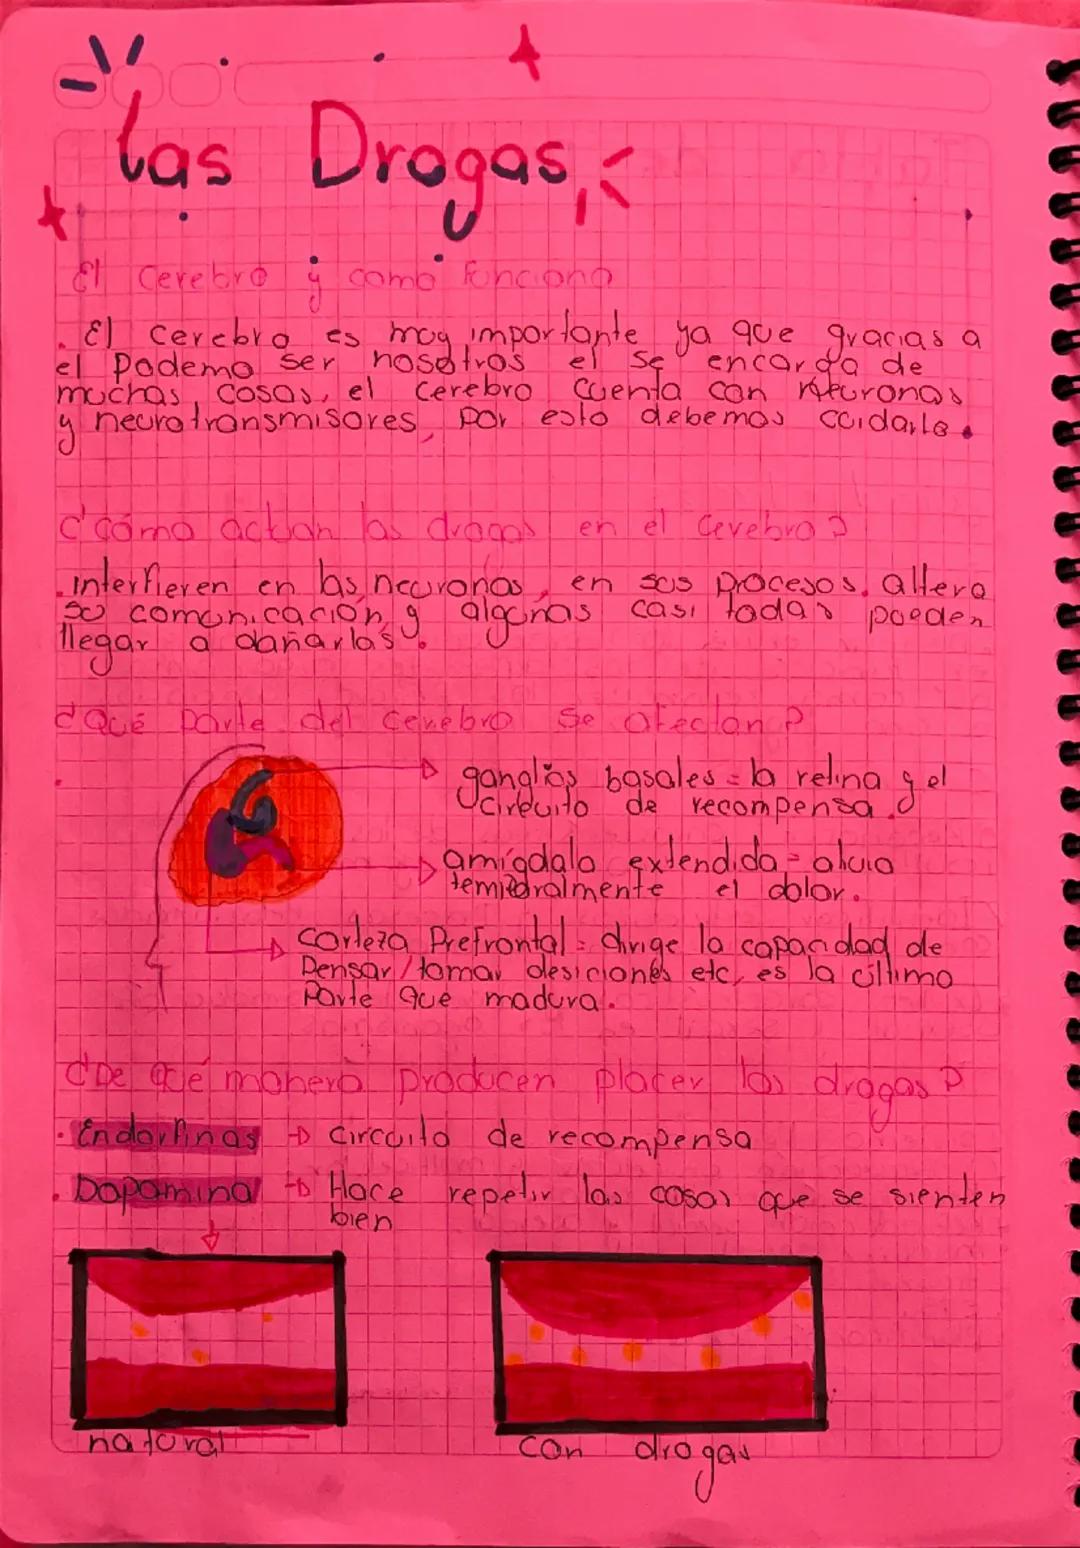 las Drogas
El cerebro y como funciona
. El cerebro es muy importante ya que gracias a
el Podemo ser nosotros el se encarga de
muchas cosas, el cerebro cuenta con Neuronas
y neurotransmisores, por esto debemos cuidarlo.
¿como actúan las drogas en el cerebro?
. Interfieren en las neuronas, en sus procesos, altera
su comunicación y algunas casi todas pueden
llegar a dañarlas.
¿Qué parte del cerebro se afectan?
ganglios basales = la retina y el
circuito de recompensa.
amígdala extendida = alivia
temporalmente el dolor.
Corteza Prefrontal = dirige la capacidad de
Pensar/tomar desiciones etc, es la última
Parte que madura.
¿De qué manera producen placer las drogas?
. Endorfinas → circuito de recompensa
. Dopamina → Hace repetir las cosas que se sienten
bien
natural
con drogas